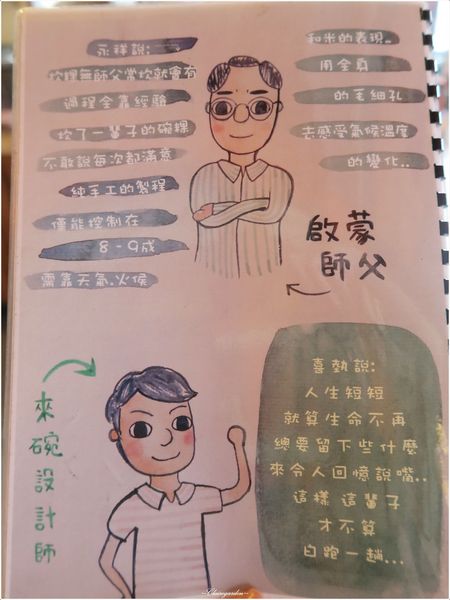 永祥說:
炊粿無師父常炊就會有
過程全靠經驗
炊了一輩子的碗粿
不敢說每次都滿意
純手工的製程
僅能控制在
8-9成
需靠天氣.火候
和米的表現..
用全身
的毛細孔
去感受氣候溫度
的變化..
啟蒙
師父
來碗設計師
喜熱說:
人生短短
就算生命不再
總要留下些什麼
來令人回憶說嘴..
這樣 這輩子
才不算
白跑一趟...
~Chinegarden~